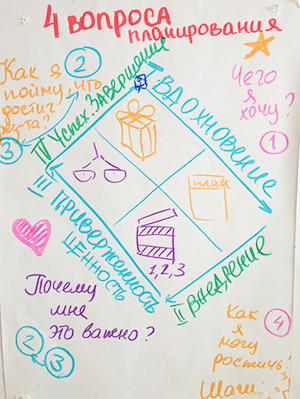 4 вопроса
планирования
Как я
пойму,
что
достиг
2
3
Чего
я
хочу?
1
IV Успех. Завершение
I
ВДОХНОВЕНИЕ
план
III ПРИВЕРЖЕННОСТЬ
ЦЕННОСТЬ
1,2,3
II ВНЕДРЕНИЕ
Почему
мне
это важно?
2
3
Как
я
могу
4
Шаги